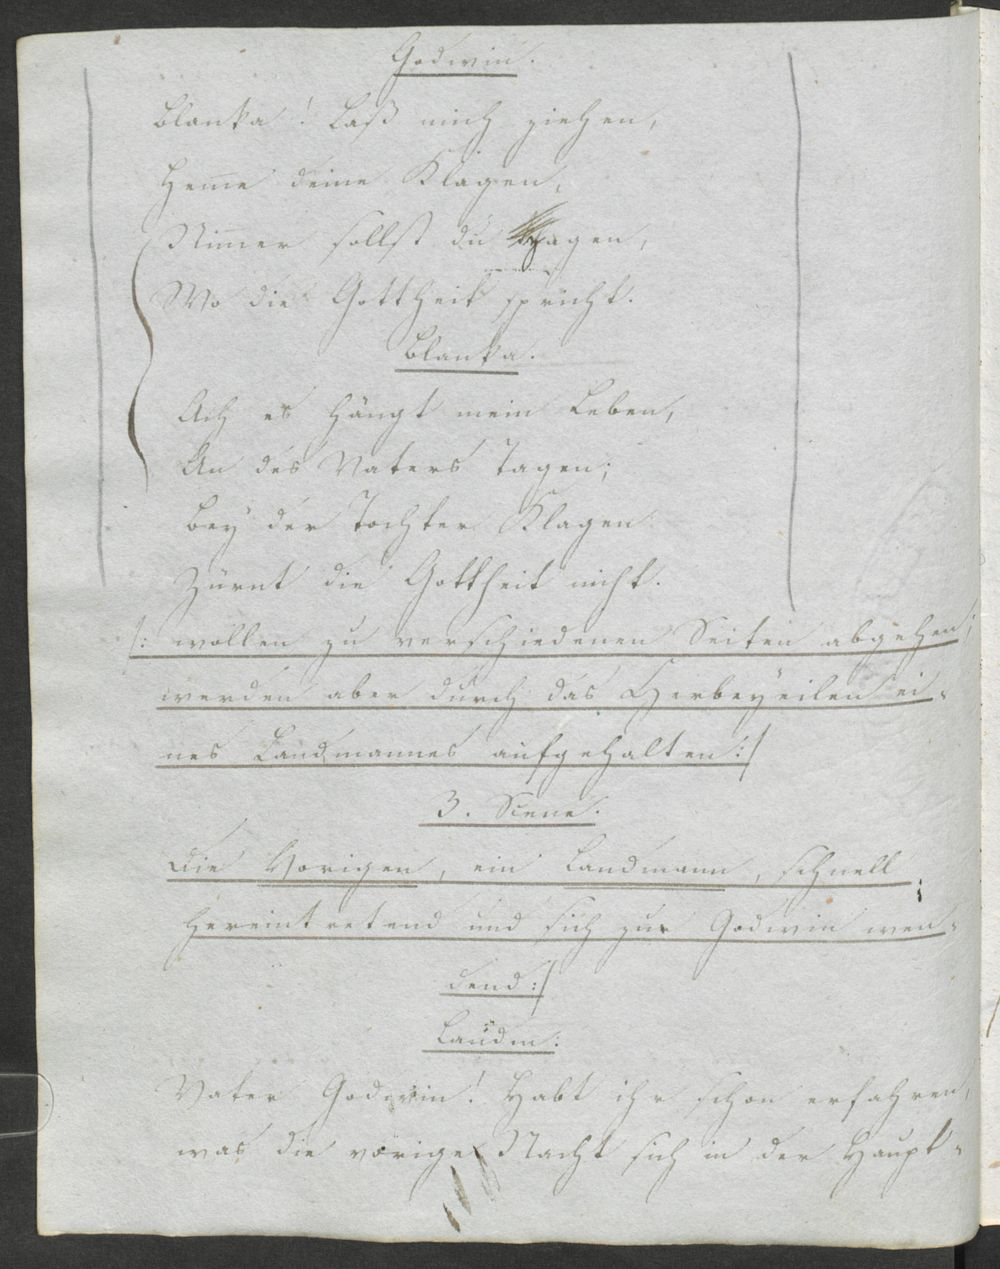 Godwin.
Blanka! Laß mich ziehen,
Hem̅e deine Klagen,
Nim̅er sollst du zagen,
Wo die Gottheit spricht.
Blanka.
Ach es hängt mein Leben,
An des Vaters Tagen;
Bey der Tochter Klagen
Zürnt die Gottheit nicht.
/: wollen zu verschiedenen Seiten abgehen,
werden aber durch das Herbeyeilen ei-
nes Landmannes aufgehalten :/
3. Scene.
Die Vorigen, ein Landmann, schnell
hereintretend und sich zur Godwin wen-
dend :/
Landm:
Vater Godwin! Habt ihr schon erfahren,
was die vorige Nacht sich in der Haupt-